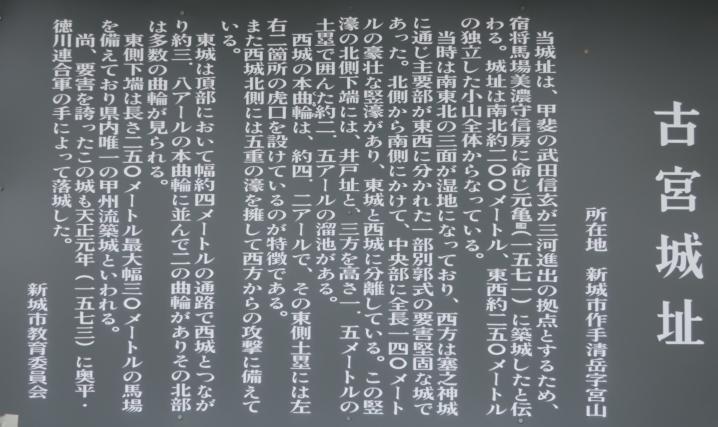 古宮城址
所在地　新城市作手清岳字宮山
当城址は、甲斐の武田信玄が三河進出の拠点とするため、
宿将馬場美濃守信房に命じ元亀二(一五七一)に築城したと伝
わる。城址は南北約二〇〇メートル、東西約二五〇メートル
の独立した小山全体からなっている。
当時は南東北の三面が湿地になっており、西方は塞之神城
に通じ主要部が東西に分かれた一部別郭式の要害堅固な城で
あった。北側から南側にかけて、中央部に全長一四〇メート
ルの豪壮な竪濠があり、東城と西城に分離している。この竪
濠の北側下端には、井戸址と、三方を高さ一．五メートルの
土塁で囲んだ約二．五アールの溜池がある。
西城の本曲輪は、約四．二アールで、その東側土塁には左
右二箇所の虎口を設けているのが特徴である。
また西城北側には五重の濠を擁して西方からの攻撃に備えて
いる。
東城は頂部において幅約四メートルの通路で西城とつなが
り約三．八アールの本曲輪に並んで二の曲輪がありその北部
は多数の曲輪が見られる。
東側下端は長さ二五〇メートル最大幅三〇メートルの馬場
を備えており県内唯一の甲州流築城といわれる。
尚、要害を誇ったこの城も天正元年（一五七三）に奥平・
徳川連合軍の手によって落城した。
新城市教育委員会